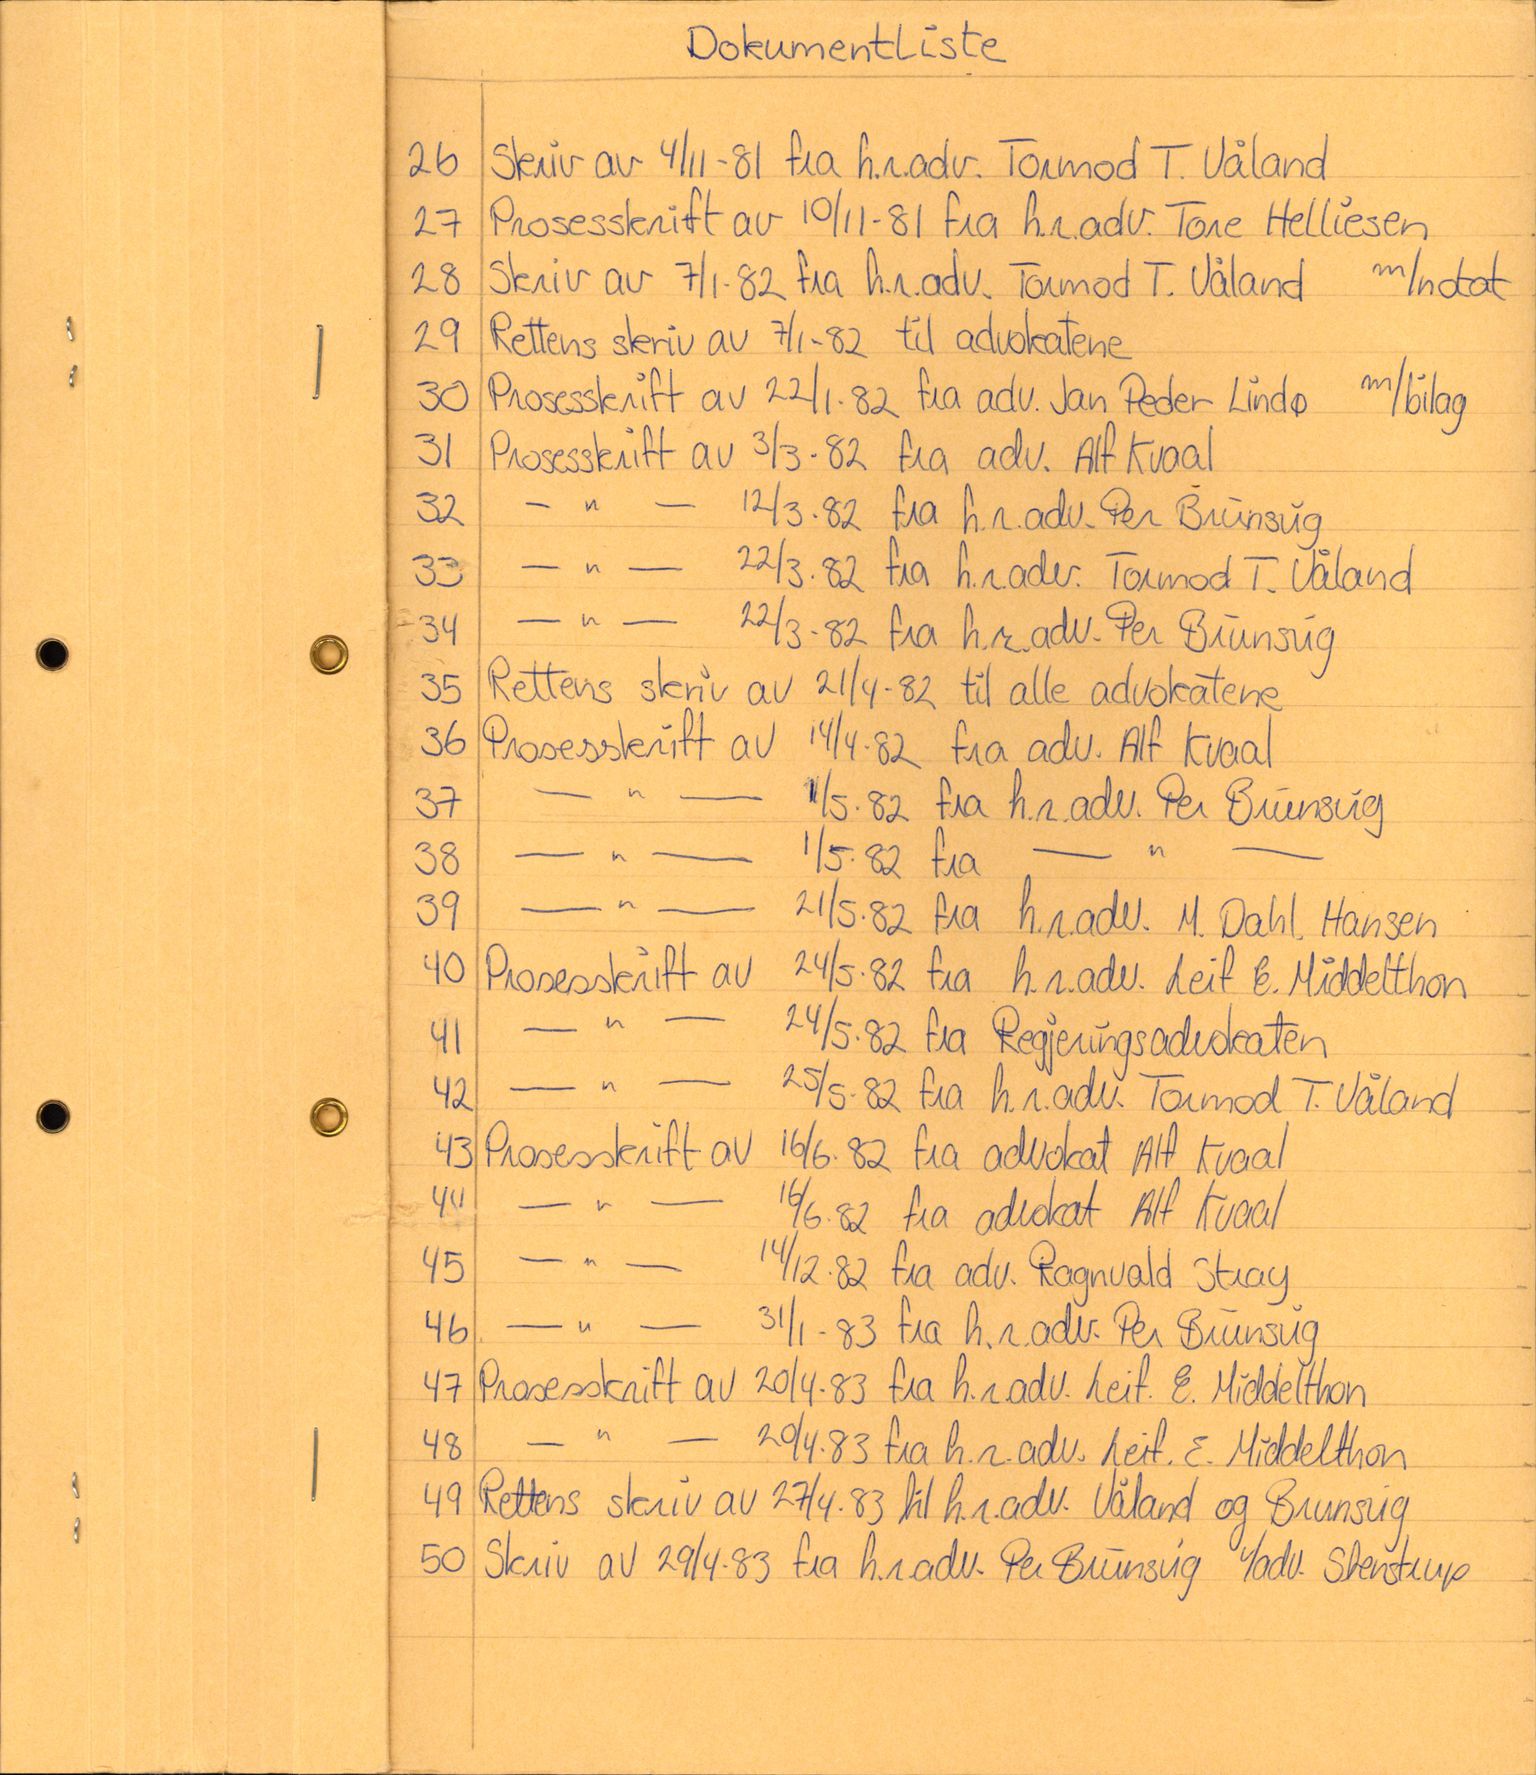 Dokumentliste
26 Skriv av 4/11-81 fra h.r.adv. Tormod T. Våland
27 Prosesskrift av 10/11-81 fra h.r.adv. Tore Helliesen
28 Skriv av 7/1-82 fra h.r.adv. Tormod T. Våland m/notat
29 Rettens skriv av 7/1-82 til advokatene
30 Prosesskrift av 22/1-82 fra adv. Jan Peder Lindø m/bilag
31 Prosesskrift av 3/3-82 fra adv. Alf Kvaal
32 — " — 12/3-82 fra h.r.adv. Per Brunsvig
33 — " — 22/3-82 fra h.r.adv. Tormod T. Våland
34 — " — 22/3-82 fra h.r.adv. Per Brunsvig
35 Rettens skriv av 21/4-82 til alle advokatene
36 Prosesskrift av 14/4-82 fra adv. Alf Kvaal
37 — " — 1/5-82 fra h.r.adv. Per Brunsvig
38 — " — 1/5-82 fra — " —
39 — " — 21/5-82 fra h.r.adv. M. Dahl. Hansen
40 Prosesskrift av 24/5-82 fra h.r.adv. Leif E. Middelthon
41 — " — 24/5-82 fra Regjeringsadvokaten
42 — " — 25/5-82 fra h.r.adv. Tormod T. Våland
43 Prosesskrift av 16/6-82 fra advokat Alf Kvaal
44 — " — 16/6-82 fra advokat Alf Kvaal
45 — " — 14/12-82 fra adv. Ragnvald Stray
46 — " — 31/1-83 fra h.r.adv. Per Brunsvig
47 Prosesskrift av 20/4-83 fra h.r.adv. Leif. E. Middelthon
48 — " — 20/4-83 fra h.r.adv. Leif. E. Middelthon
49 Rettens skriv av 27/4-83 til h.r.adv. Våland og Brunsvig
50 Skriv av 29/4-83 fra h.r.adv. Per Brunsvig v/adv. Stenstrup